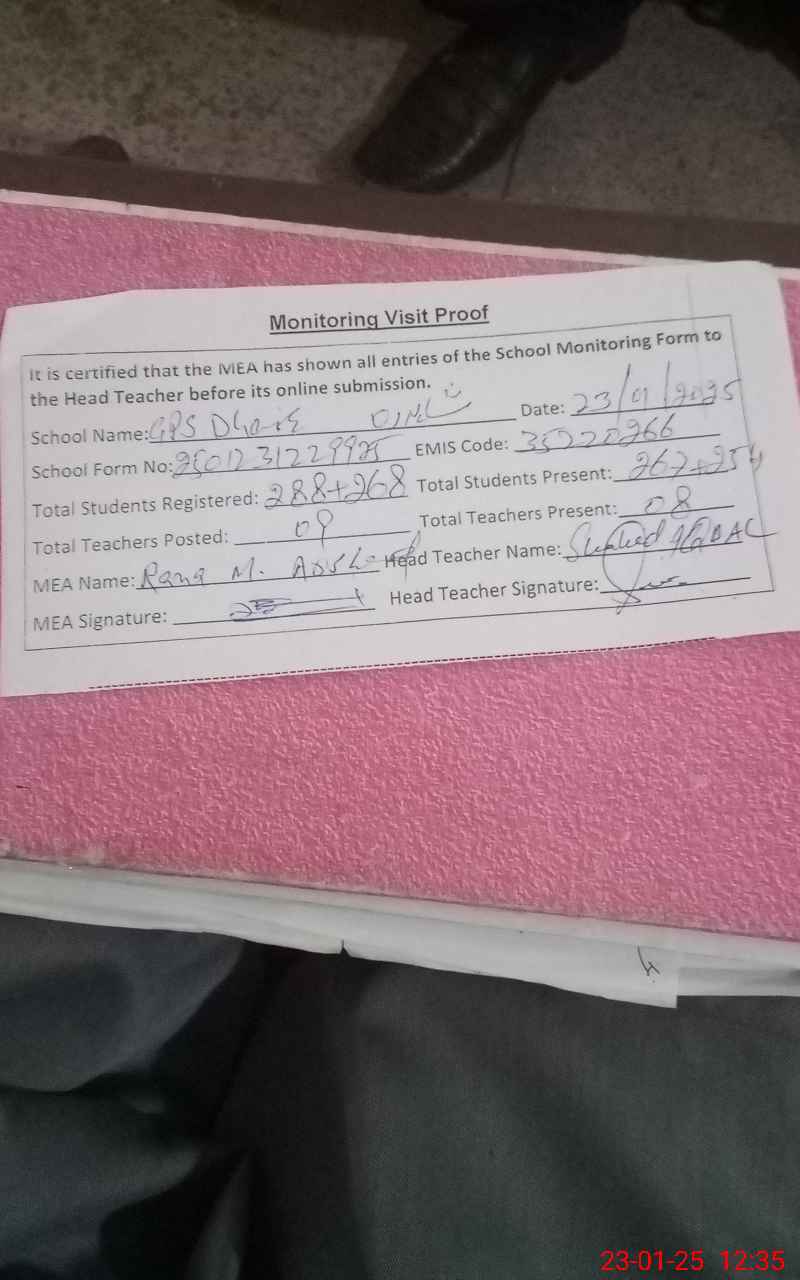 Monitoring Visit Proof
It is certified that the MEA has shown all entries of the School Monitoring Form to
the Head Teacher before its online submission.
School Name: GPS Date: 23/01/2025
School Form No: 2501231229925 EMIS Code: 35220266
Total Students Registered: 288+268 Total Students Present: 262+254
Total Teachers Posted: 09 Total Teachers Present: 08
MEA Name: Rana M. Head Teacher Name:
MEA Signature: Head Teacher Signature:
23-01-25 12:35